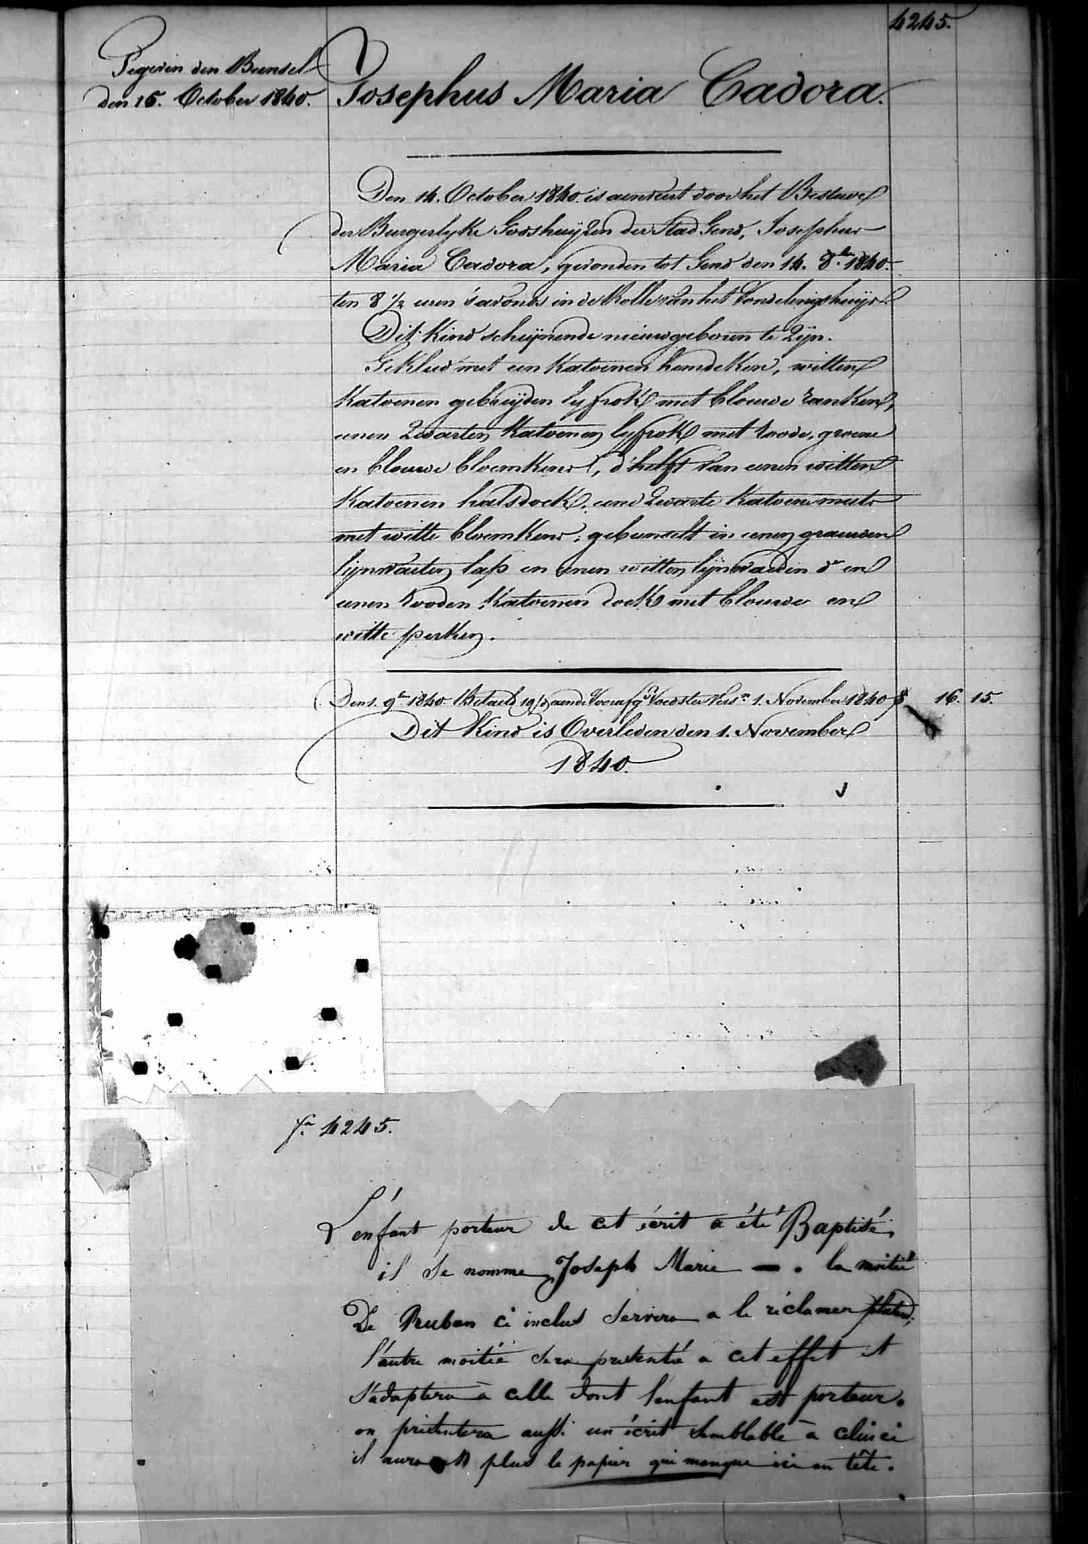 4245.
den 15. October 1840.
Josephus Maria Cadora.
Den 14. October 1840 is aenveert door het Bestuur
der Burgerlyke Godshuijzen der Stad Gend, Josephus
Maria Cadora, gevonden tot Gend den 14. 8bre 1840.
ten 8 1/2 uren s'avonds in de Rolle van het Vondelingshuijs.
Dit Kind schijnende nieuwgeboren te Zijn.
Gekleed met een Katoenen hemdeken, witten
Katoenen gebreijden lyfrok met blauwe ranken,
eenen Zwarten Katoenen lyfrok met roode, groene
en blauwe bloemkens, d'helft van eenen witten
Katoenen halsdoek, eene Zwarte Katoene muts
met witte bloemkens, gebunselt in eenen grauwen
lijnwaeten lap en eenen witten lijnwaeden dr en
eenen rooden Katoenen doek met blauwe en
witte perken.
Den 1. 9br 1840 Betaeld aen de Voedster 1. November 1840 16. 15.
Dit Kind is Overleden den 1. November
1840.
4245.
L'enfant porteur de cet écrit a été Baptisé,
il se nomme Joseph Marie — . la moitié
De Ruban ci inclus servira a le réclamer
l'autre moitié sera présentée a cet effet et
s'adaptera à celle dont l'enfant est porteur.
on présentera aussi un écrit semblable à celui ci
il aura plus le papier qui manque ici en tête.